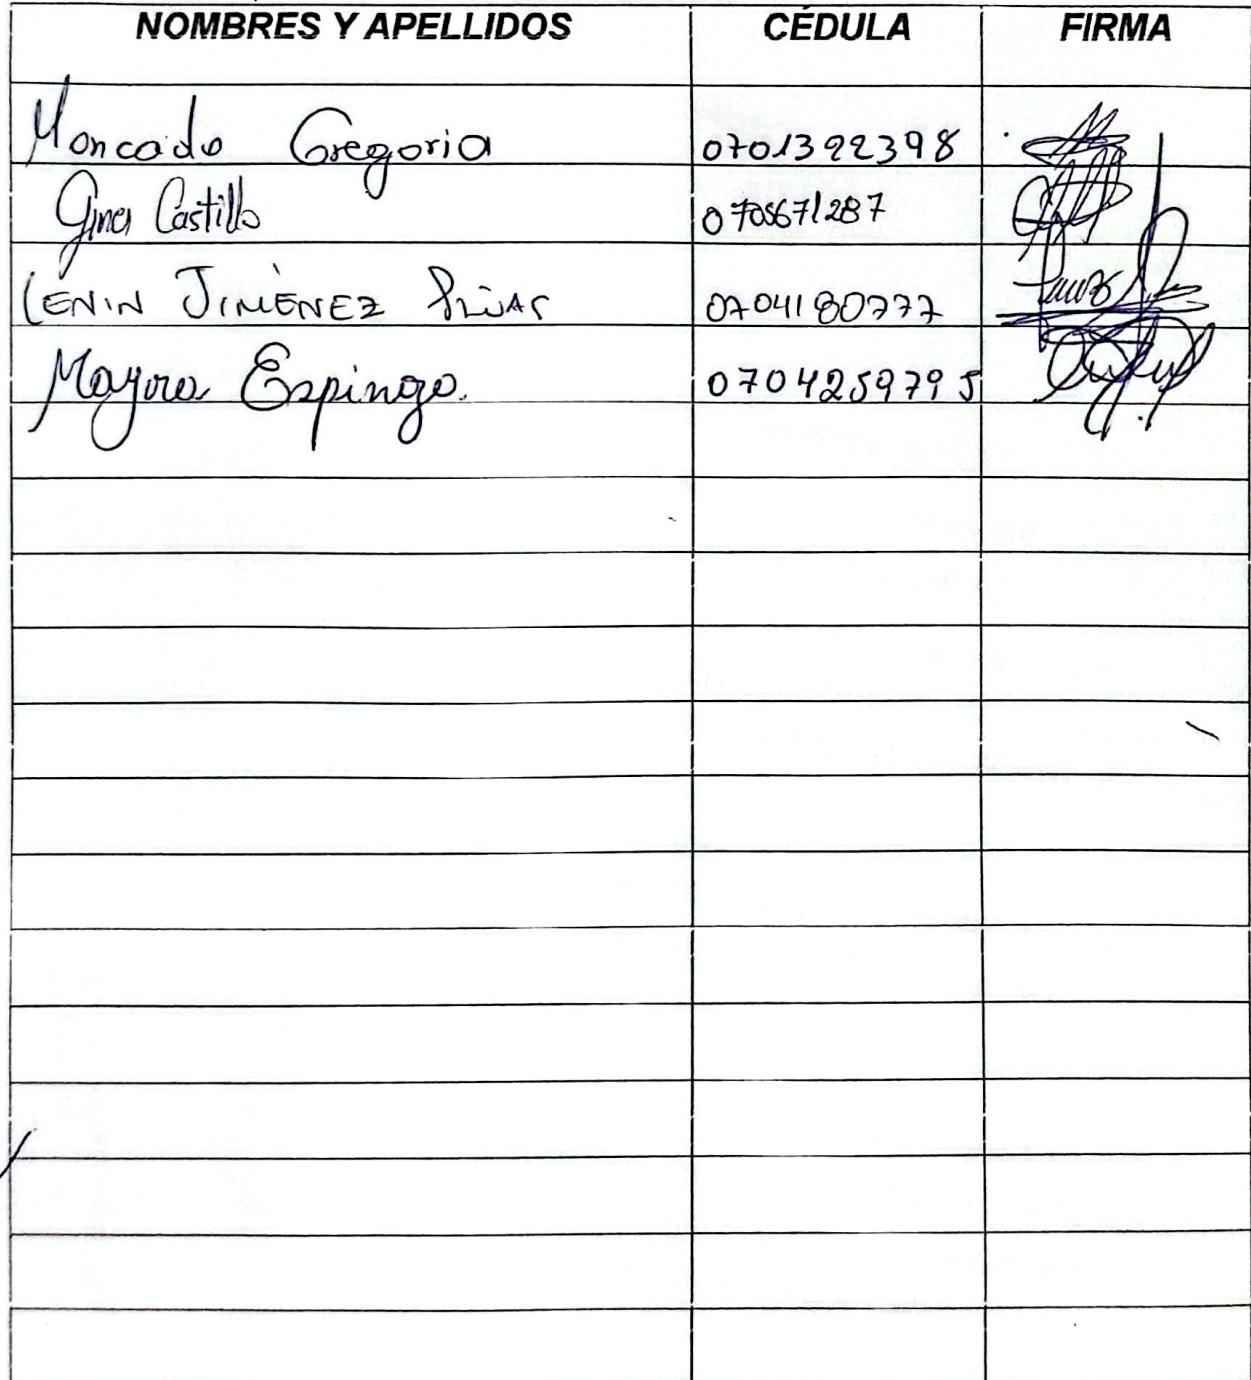 NOMBRES Y APELLIDOS CÉDULA FIRMA
Moncada Gregoria 0701392398
Gina Castillo 0705671287
LENIN JIMÉNEZ 0704180777
Mayra Espinoza. 0704259795